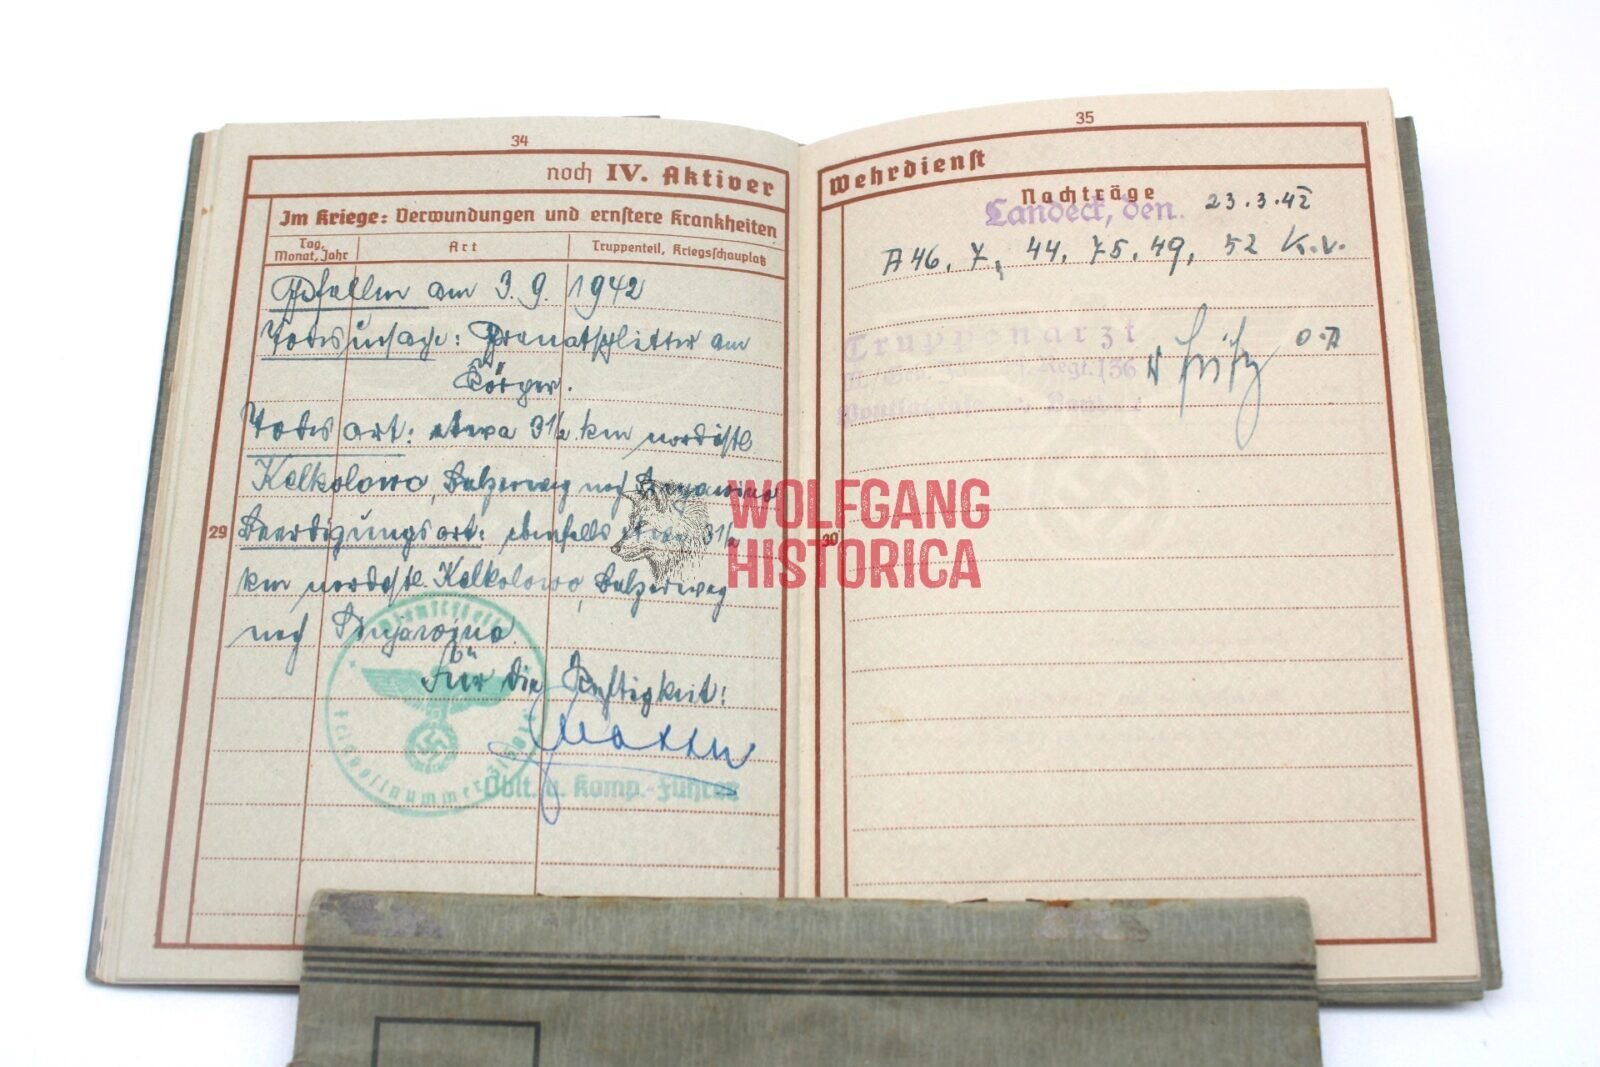 34
noch IV. Aktiver
Im Kriege: Verwundungen und ernstere Krankheiten
Tag, Monat, Jahr
Art
Truppenteil, Kriegsschauplatz
Gefallen am 3.9.1942
Todesursache: Granatsplitter am
Körper.
Todesort: etwa 3½ km nordöstl.
Kelkolowo, nach
29
Beerdigungsort: ebenfalls etwa 3½
km nordöstl. Kelkolowo,
nach
Für die Richtigkeit:
Oblt. u. Komp.-Führer
Dienststelle
Feldpostnummer
35
Wehrdienst
Nachträge
Landeck, den 23.3.42
A46, 7, 44, 75, 49, 52 K.v.
Truppenarzt
Regt. 136
30
WOLFGANG
HISTORICA